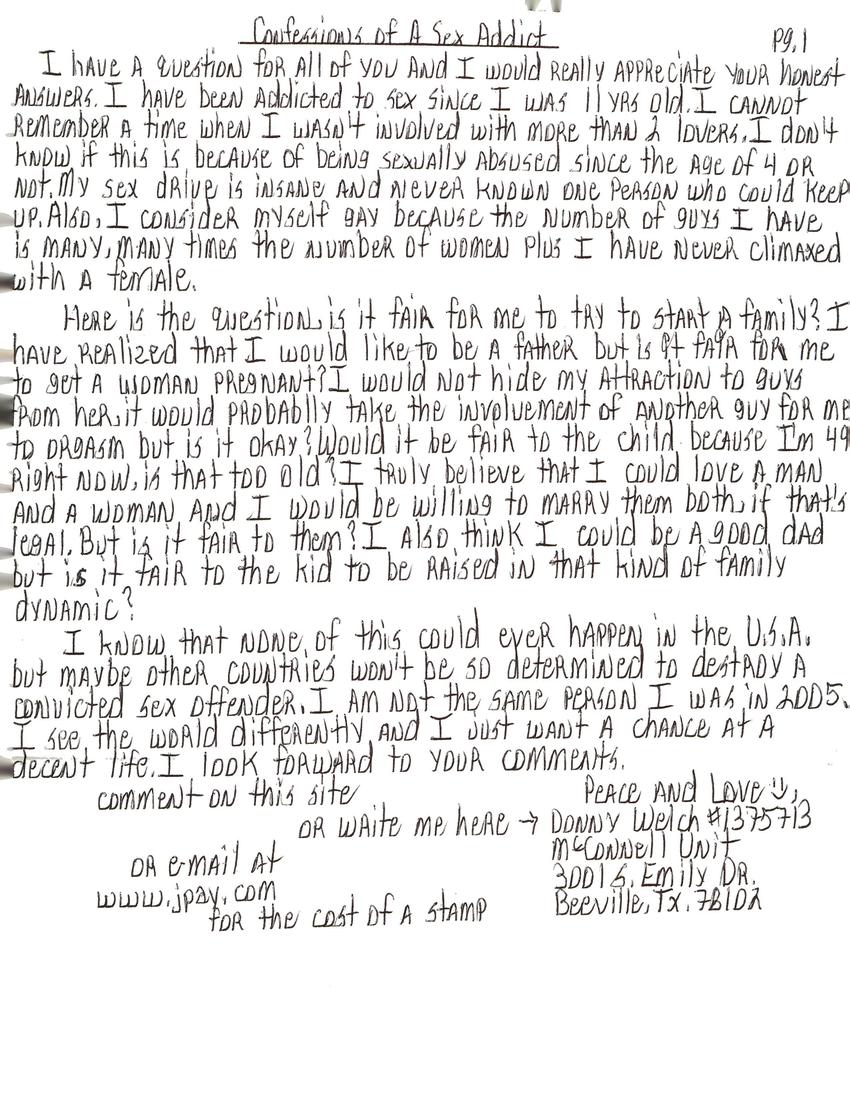 Confessions of A Sex Addict
Pg.1
I have a question for all of you and I would really appreciate your honest
answers. I have been addicted to sex since I was 11 yrs old. I cannot
remember a time when I wasn't involved with more than 2 lovers. I don't
know if this is because of being sexually absused since the age of 4 or
not. My sex drive is insane and never known one person who could keep
up. Also, I consider myself gay because the number of guys I have
is many, many times the number of women plus I have never climaxed
with a female.
Here is the question, is it fair for me to try to start a family? I
have realized that I would like to be a father but is it fair for me
to get a woman pregnant? I would not hide my attraction to guys
from her, it would probablly take the involvement of another guy for me
to orgasm but is it okay? Would it be fair to the child because I'm 49
right now, is that too old? I truly believe that I could love a man
and a woman and I would be willing to marry them both, if that's
legal. But is it fair to them? I also think I could be a good dad
but is it fair to the kid to be raised in that kind of family
dynamic?
I know that none of this could ever happen in the U.S.A.
but maybe other countries won't be so determined to destroy a
convicted sex offender. I am not the same person I was in 2005.
I see the world differently and I just want a chance at a
decent life. I look forward to your comments.
comment on this site
Peace and Love :),
or write me here → Donny Welch #1375713
McConnell Unit
or e-mail at
3001 S. Emily Dr.
www.jpay.com
Beeville, Tx. 78102
for the cost of a stamp